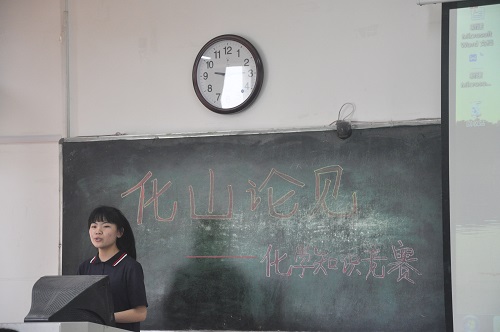 12
1
2
3
4
5
6
7
8
9
10
11
化山论见
——化学知识竞赛